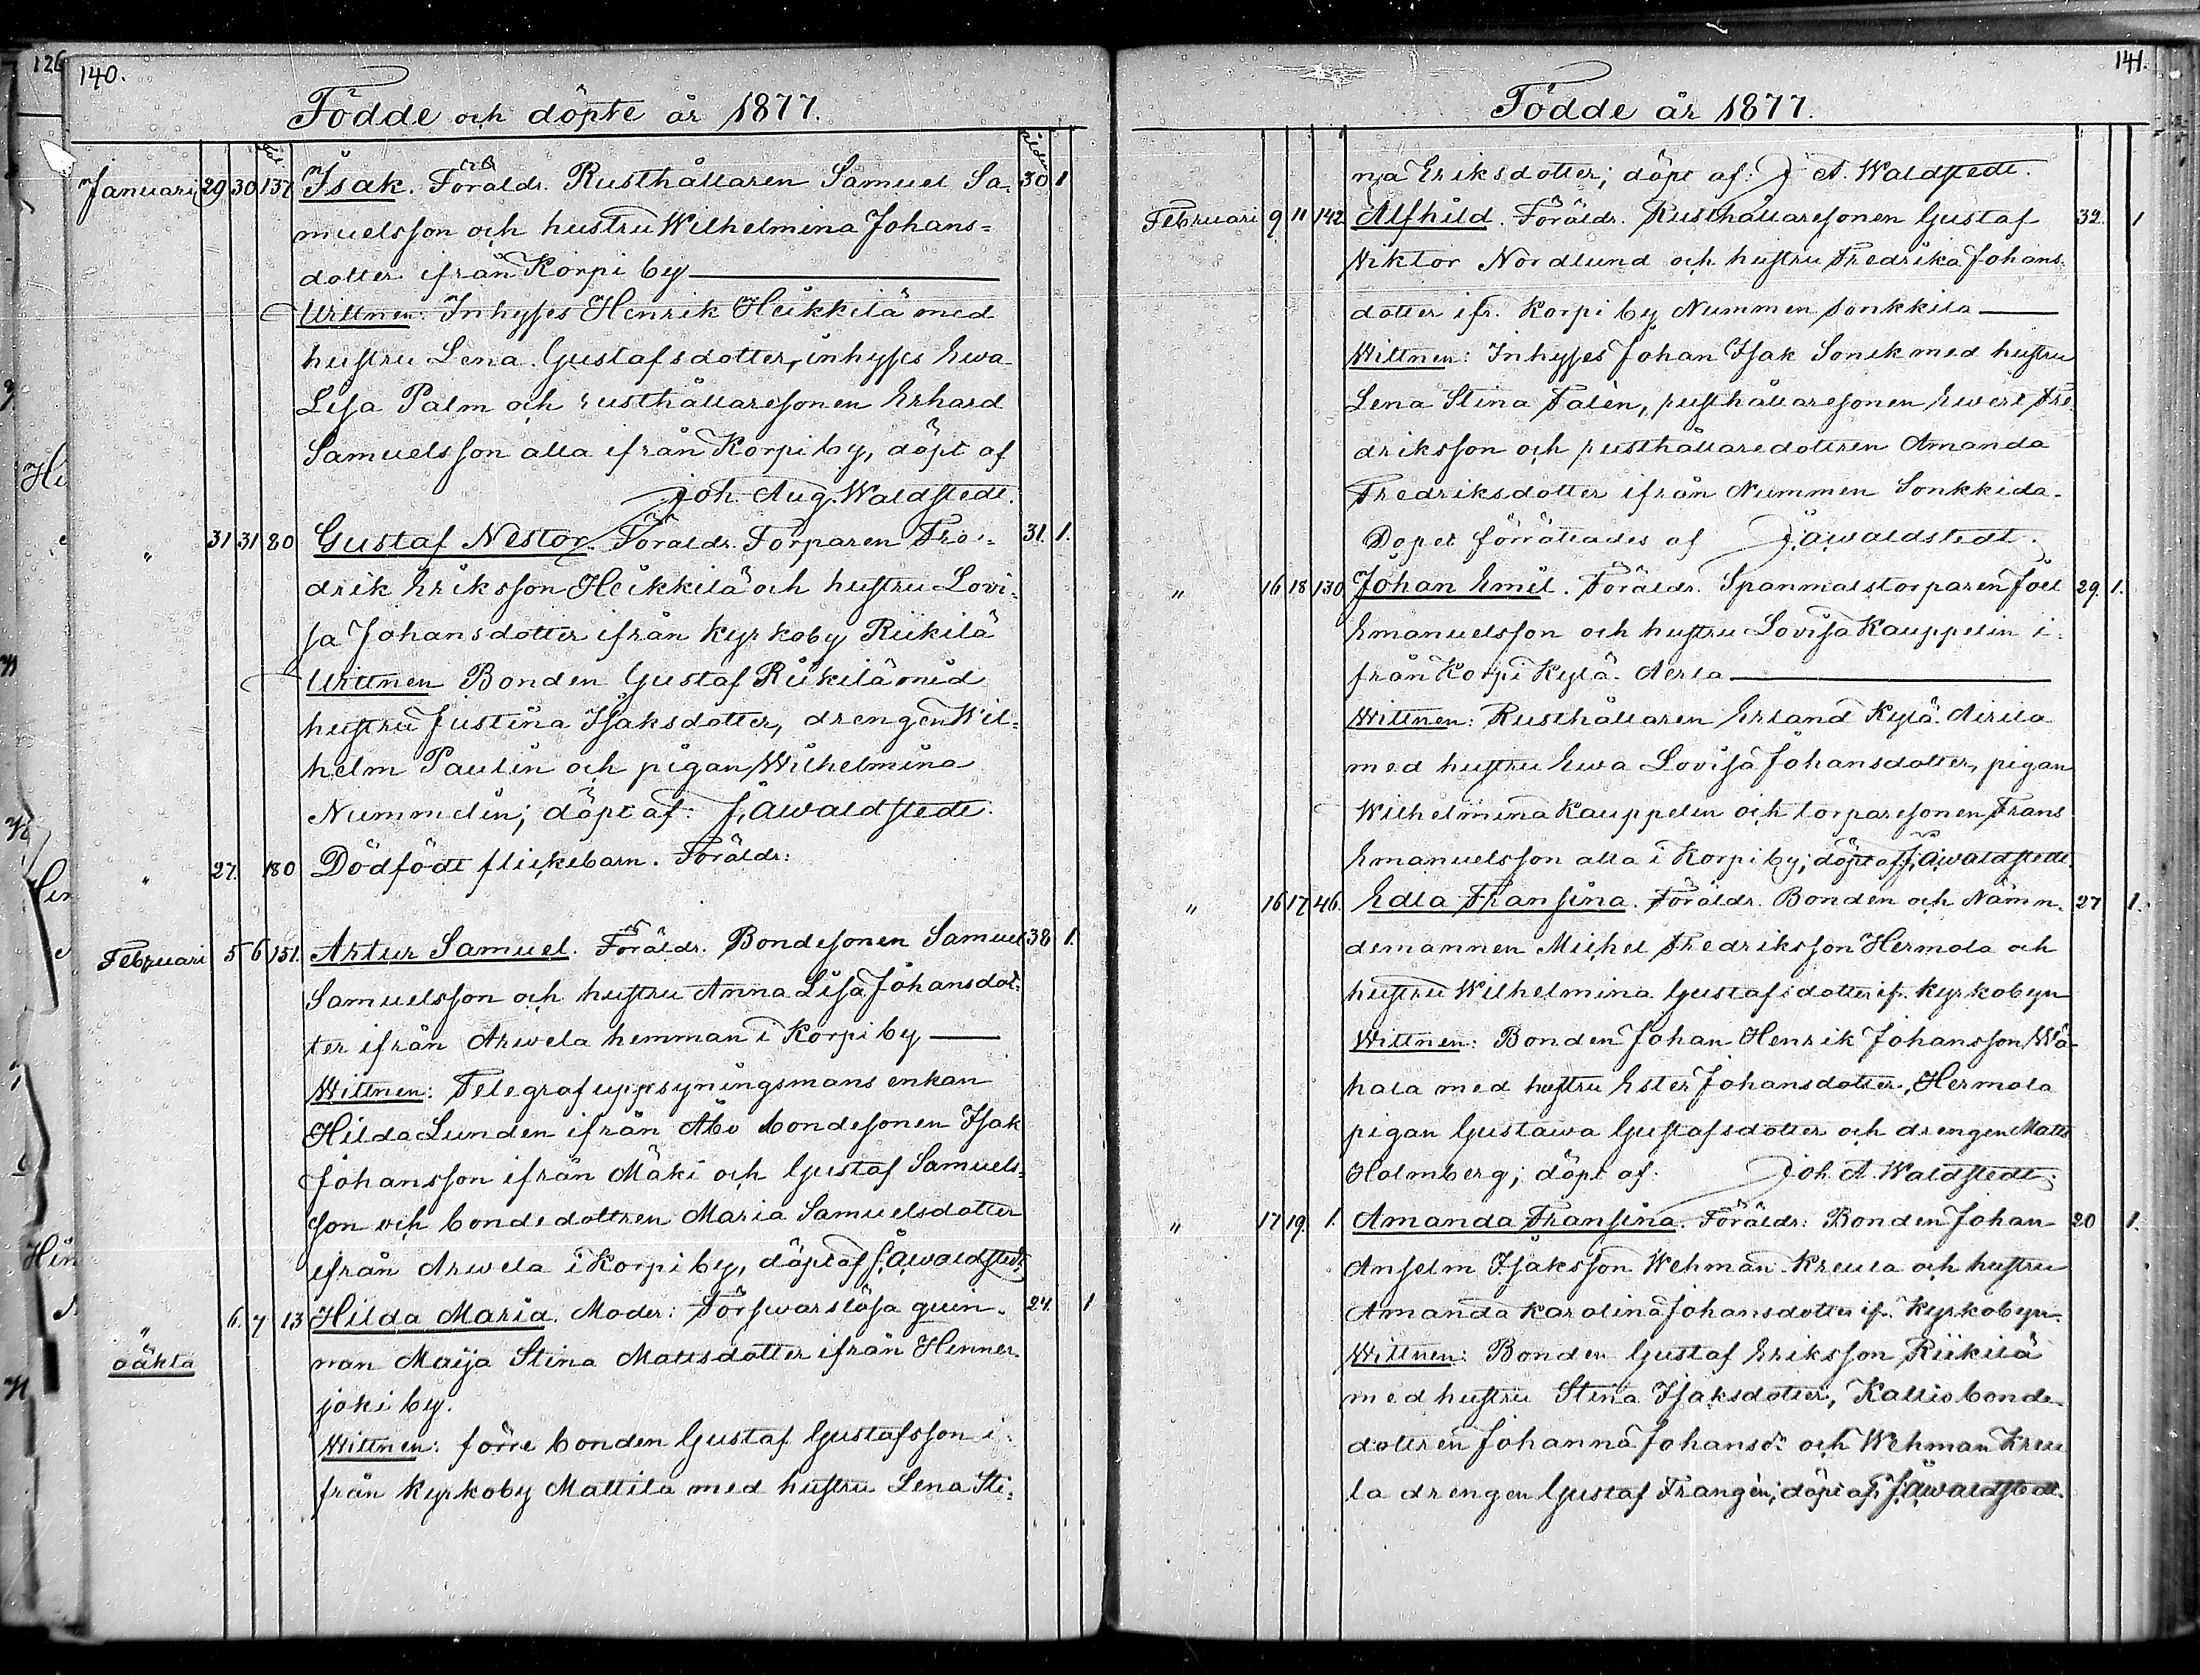 140.
Födde och döpte år 1877.
Januari 29 30 137 Isak. Föräldr. Rusthållaren Samuel Sa- 30 1
muelsson och hustru Wilhelmina Johans=
dotter ifrån Korpi by
Wittnen: Inhyses Henrik Heikkilä med
hustru Lena Gustafsdotter, inhyses Ewa
Lisa Palm och rusthållaresonen Erhard
Samuelsson alla ifrån Korpi by, döpt af
Joh. Aug. Waldstedt.
" 31 31 80 Gustaf Nestor. Föräldr. Torparen Fre= 31. 1.
drik Eriksson Heikkilä och hustru Lovi=
sa Johansdotter ifrån kyrkoby Riikilä
Wittnen Bonden Gustaf Riikilä med
hustru Justina Isaksdotter, drengen Wil=
helm Paulin och pigan Wilhelmina
Nummelin; döpt af: J. A. Waldstedt.
" 27. 180 Dödfödt flickebarn. Föräldr:
Februari 5 6 151. Artur Samuel. Föräldr. Bondesonen Samuel 38 1.
Samuelsson och hustru Anna Lisa Johansdot=
ter ifrån Arwela hemman i Korpi by
Wittnen: Telegrafuppsyningsmans enkan
Hilda Lunden ifrån Åbo bondesonen Isak
Johansson ifrån Mäki och Gustaf Samuels=
son och bondedottren Maria Samuelsdotter
ifrån Arwela i Korpi by, döpt af J. A. Waldstedt.
" 6. 7 13 Hilda Maria. Moder: Förswarslösa qwin- 24. 1
oäkta nan Maija Stina Mattsdotter ifrån Hinner-
joki by.
Wittnen: förre bonden Gustaf Gustafsson i=
från kyrkoby Mattila med hustru Lena Sti=
141.
Födde år 1877.
na Eriksdotter; döpt af: J. A. Waldstedt.
Februari 9 11 142 Alfhild. Föräldr. Rusthållaresonen Gustaf 32. 1
Wiktor Nordlund och hustru Fredrika Johans-
dotter ifr. Korpi by Nummen Sonkkila
Wittnen: Inhyses Johan Isak Sonik med hustru
Lena Stina Falèn, rusthållaresonen Ewert Fre-
driksson och rusthållaredottren Amanda
Fredriksdotter ifrån Nummen Sonkkila.
Dopet förrättades af J. A. Waldstedt.
" 16 18 130 Johan Emil. Föräldr. Spanmalstorparen Joel 29. 1.
Emanuelsson och hustru Lovisa Kauppelin i=
från Korpi Kylä. Aerla
Wittnen: Rusthållaren Erland Kylä. Airila
med hustru Ewa Lovisa Johansdotter, pigan
Wilhelmina Kauppelin och torparesonen Frans
Emanuelsson alla i Korpi by; döpt af J. A. Waldstedt.
" 16 17 46. Edla Fransina. Föräldr. Bonden och Nämn- 27 1.
demannen Michel Fredriksson Hermola och
hustru Wilhelmina Gustafsdotter ifr. kyrkobyn
Wittnen: Bonden Johan Henrik Johansson Wä-
hala med hustru Ester Johansdotter, Hermola
pigan Gustawa Gustafsdotter och drengen Matts
Holmberg; döpt af: Joh. A. Waldstedt.
" 17 19. 1. Amanda Fransina. Föräldr: Bonden Johan 20 1.
Anselm Isaksson Wehman. Kreula och hustru
Amanda Karolina Johansdotter ifr. kyrkobyn.
Wittnen: Bonden Gustaf Eriksson Riikilä
med hustru Stina Isaksdotter, Kallio bonde-
dottren Johanna Johansdr och Wehman Kreu
la drengen Gustaf Frangèn; döpt af J. A. Waldstedt.